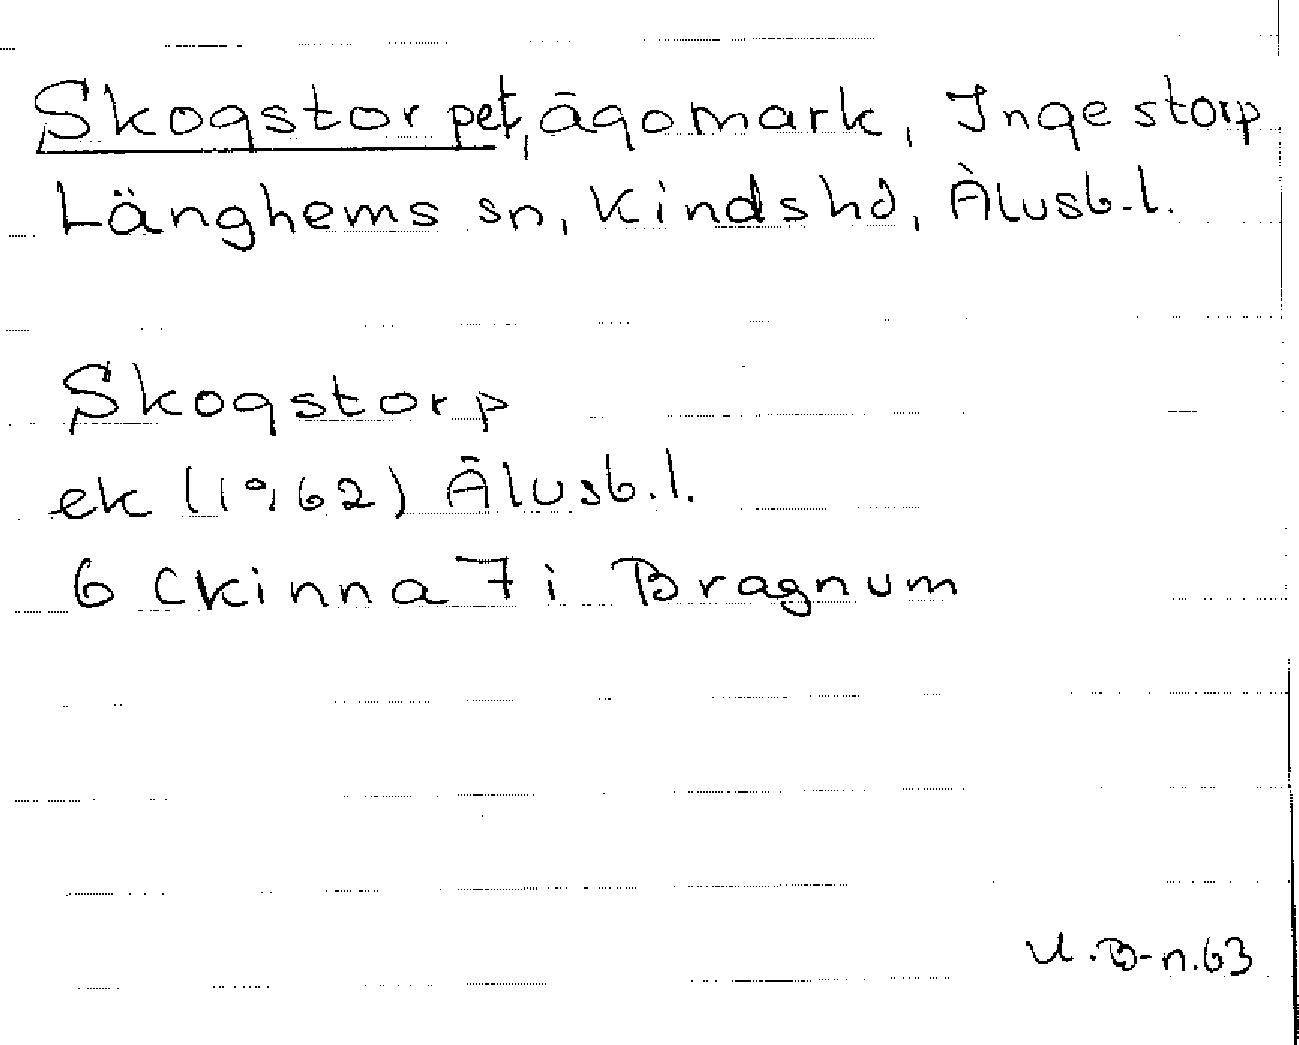 Skogstorpet, ägomark, Ingestorp
Länghems sn, Kinds hd, Älvsb.l.
Skogstorp
ek (1962) Älvsb.l.
6 Ckinna 7 i Bragnum
U.B-n.63